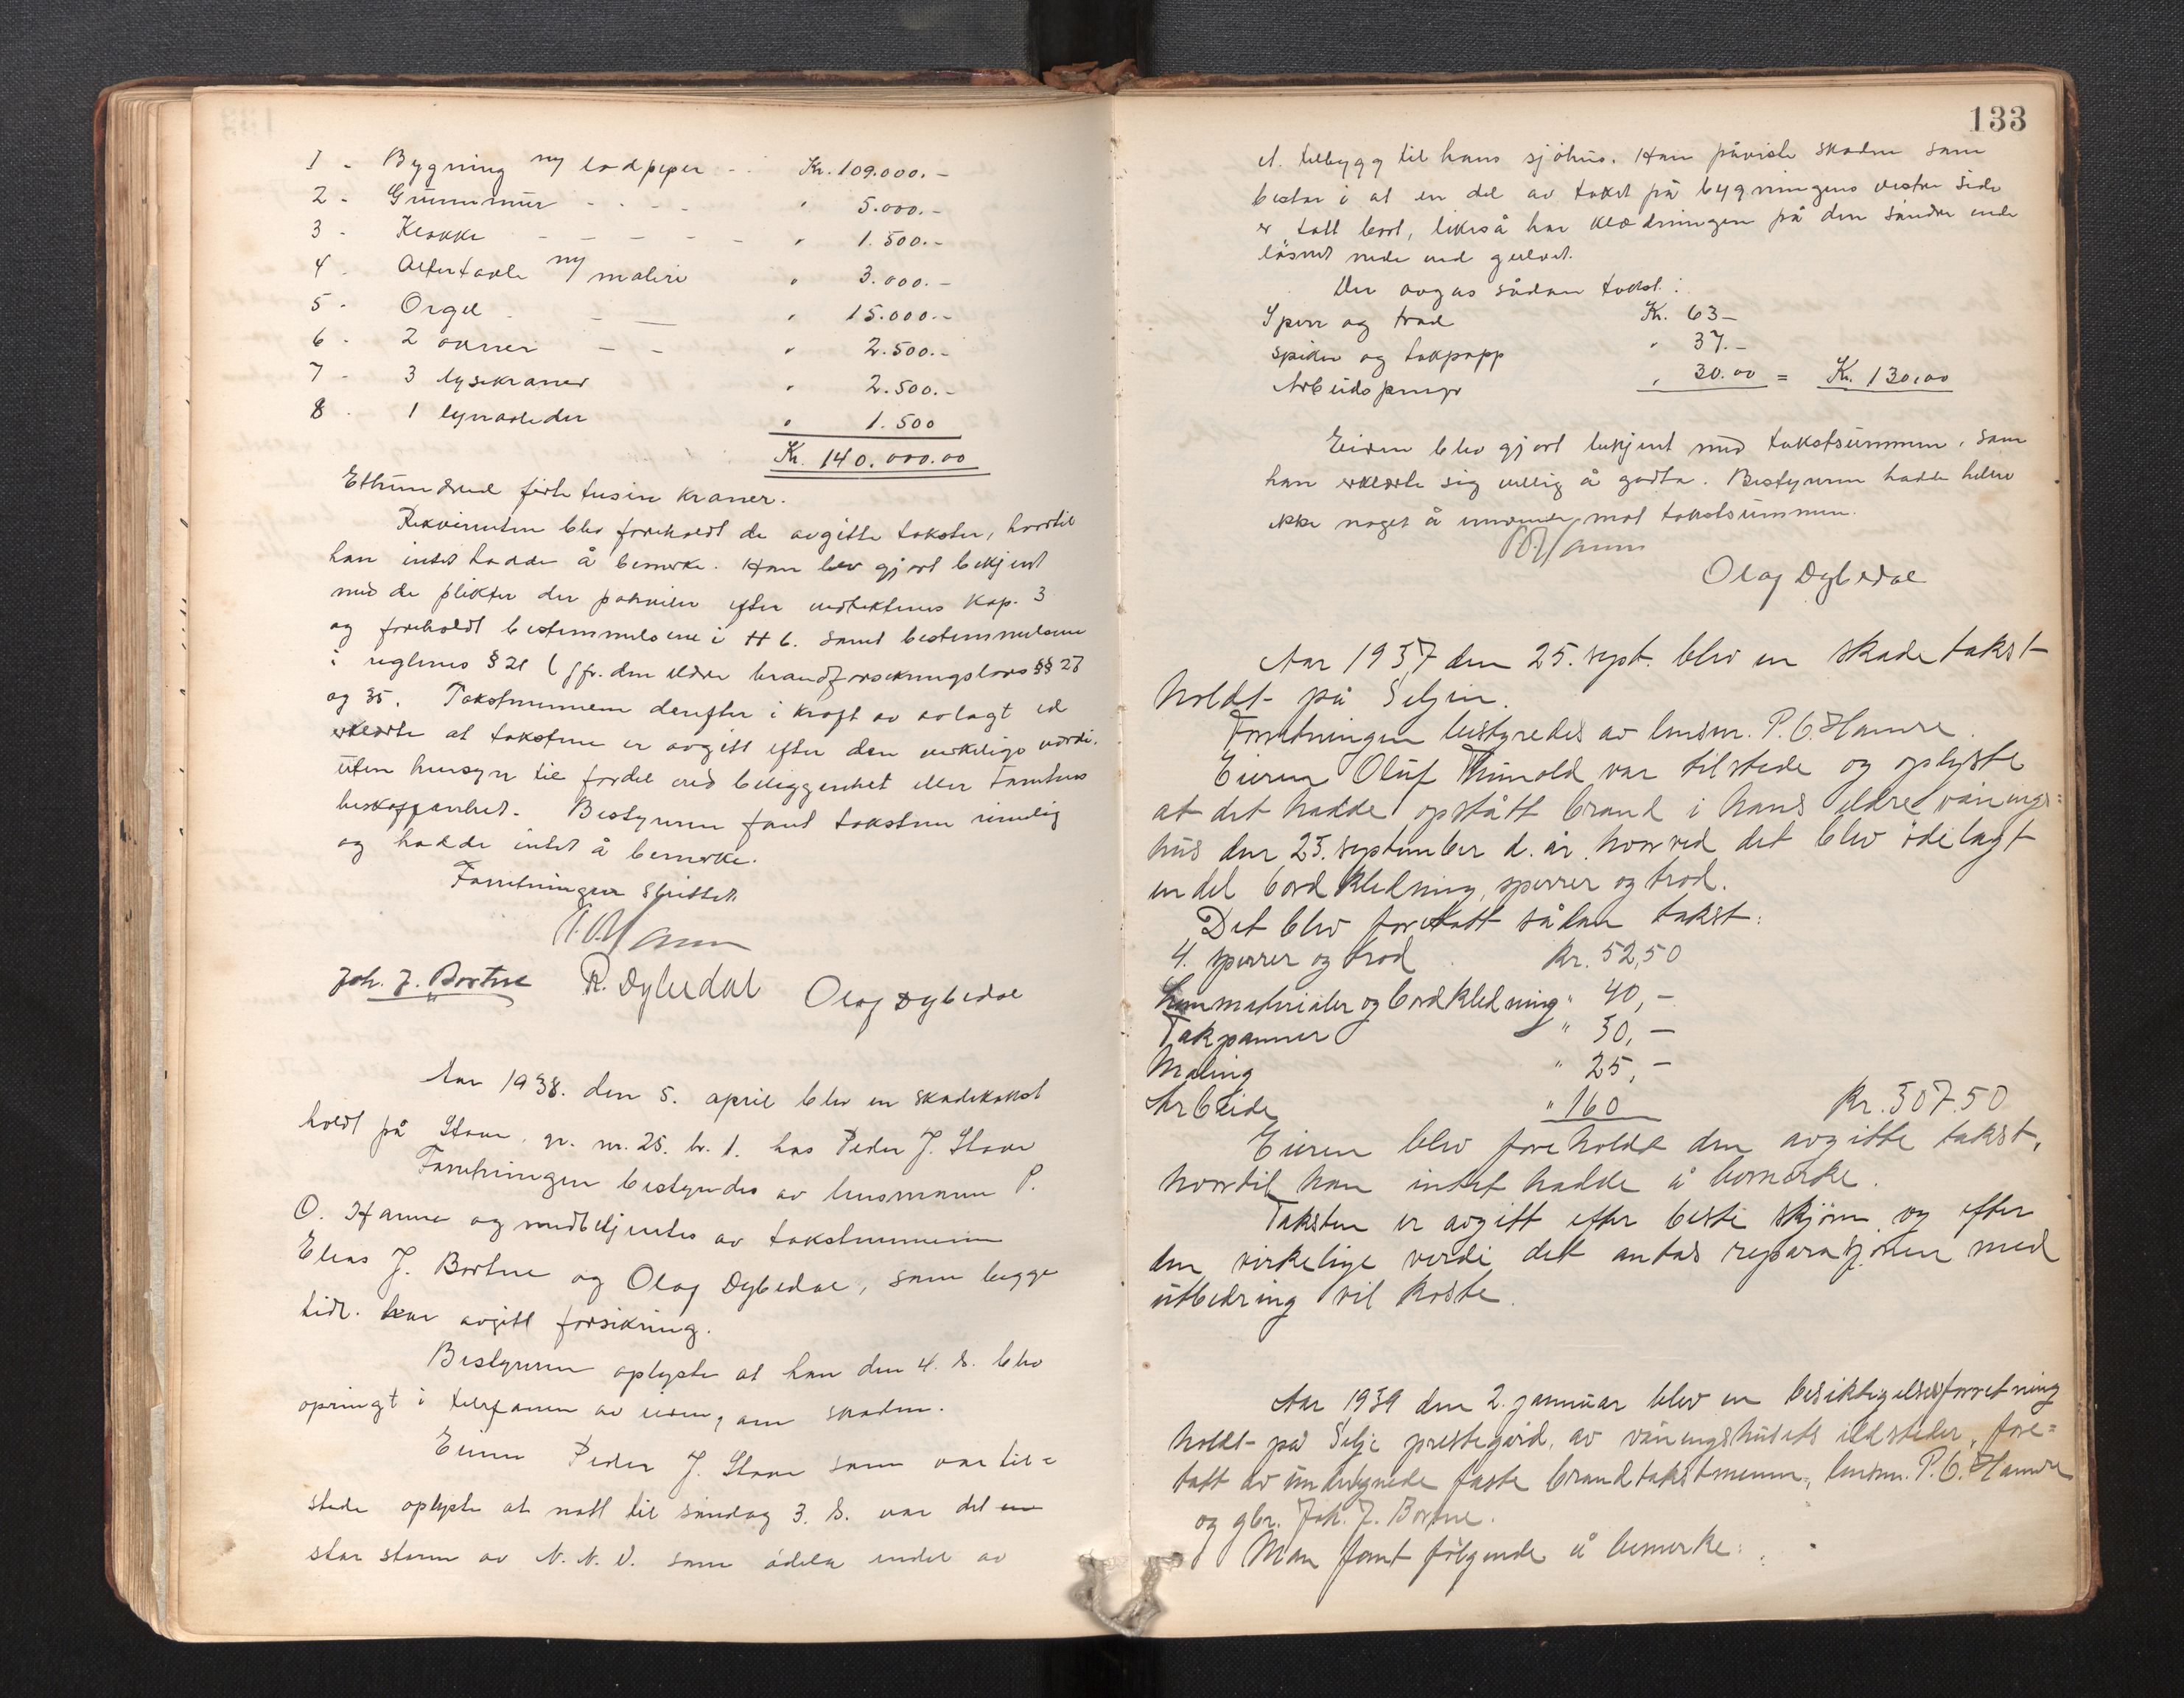 1 - Bygning m/ lødpiper - - Kr. 109.000.-
2 - Grunnmur - - - - " 5.000.-
3 - Klokke - - - - - " 1.500.-
4 - Altertavle m/ maleri " 3.000.-
5 - Orgel - - — " 15.000.-
6 - 2 ovner - - " 2.500.-
7 - 3 lysekroner " 2.500.-
8 - 1 lynavleder " 1.500
Kr. 140.000.00
Ethundred førti tusin kroner.
Rekvirenten blev foreholdt de avgitte takster, hvortil
han intet hadde å bemerke. Han blev gjort bekjent
med de plikter der påhviler efter vedtektenes Kap. 3
og foreholdt bestemmelsene i H 6. samt bestemmelsene
i reglenes § 21 (jfr. den eldre brandforsikringslovs §§ 27
og 35. Takstmennene derefter i kraft av avlagt ed
erklærte at takstene er avgitt efter den virkelige værdi.
uten hensyn til fordel ved beliggenhet eller tomtens
beskaffenhet. Bestyreren fant taksten rimelig
og hadde intet å bemerke.
Forretningen sluttet.
P.O. Hamre
Joh. J. Bortne R. Dybedal Olav Dybedal
Aar 1938. den 5. april blev en skadetakst
holdt på Stave, gr. nr. 25. br. 1. hos Peder J. Stave
Forretningen bestyredes av lensmann P.
O. Hamre og medbetjentes av takstmennene
Elias J. Bortne og Olav Dybedal, som begge
tidl. har avgitt forsikring.
Bestyreren oplyste at han den 4. ds. blev
opringt i telefonen av eieren, om skaden.
Eieren Peder J. Stave som var til=
stede oplyste at natt til søndag 3. ds. var det en
stor storm av N.N.V. som ødela endel av
133
et tilbygg til hans sjøhus. Han påviste skaden som
består i at en del av taket på bygningens vestre side
er tatt bort, likeså har klædningen på den søndre ende
løsnet nede ved gulvet.
Der avgas sådan takst:
Sperr og trod Kr. 63-
spiker og takpapp " 37.-
Arbeidspenger " 30.00 = Kr. 130,00
Eieren blev gjort bekjent med takstsummen, som
han erklærte sig villig å godta. Bestyreren hadde heller
ikke noget å innvende mot takstsummen.
P.O. Hamre
Olav Dybedal
Aar 1937 den 25. sept. blev en skadetakst
holdt på Seljen.
Forretningen bestyredes av lensm. P. O. Hamre.
Eieren Oluf Thunold var tilstede og oplyste
at det hadde opstått brand i hans eldre vånings=
hus den 23. september d. år. hvorved det blev ødelagt
en del bordkledning, sperrer og trod.
Det blev foretatt sådan takst:
4. sperrer og trod Kr. 52,50
materialer og bordkledning " 40,-
Takpanner " 30,-
Maling " 25,-
Arbeide " 160 Kr. 307.50
Eieren blev foreholdt den avgitte takst,
hvortil han intet hadde å bemerke.
Taksten er avgitt efter beste skjønn og efter
den virkelige verdi det antas reparasjonen med
utbedring vil koste.
Aar 1939 den 2. januar blev en besiktigelsesforretning
holdt på Selje prestegård, av våningshusets ildsteder, fore=
tatt av undertegnede faste brandtakstmenn, lensm. P. O. Hamre
og gbr. Joh. J. Bortne.
Man fant følgende å bemerke: